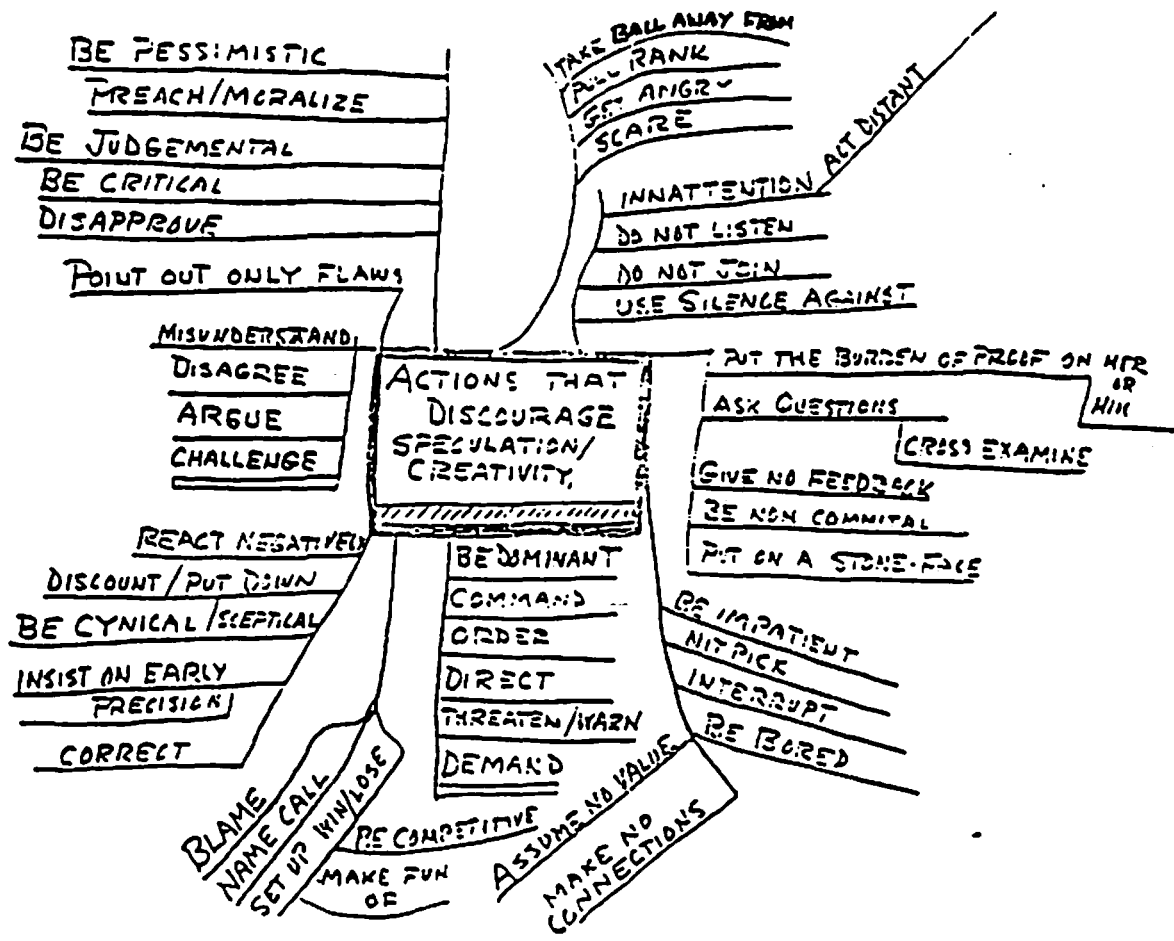 BE PESSIMISTIC
PREACH/MORALIZE
BE JUDGEMENTAL
BE CRITICAL
DISAPPROVE
POINT OUT ONLY FLAWS
TAKE BALL AWAY FROM
PULL RANK
GET ANGRY
SCARE
INNATTENTION
ACT DISTANT
DO NOT LISTEN
DO NOT JOIN
USE SILENCE AGAINST
MISUNDERSTAND
DISAGREE
ARGUE
CHALLENGE
ACTIONS THAT
DISCOURAGE
SPECULATION/
CREATIVITY.
PUT THE BURDEN OF PROOF ON HER
OR
HIM
ASK QUESTIONS
CROSS EXAMINE
GIVE NO FEEDBACK
BE NON COMMITAL
PUT ON A STONE-FACE
REACT NEGATIVELY
DISCOUNT/PUT DOWN
BE CYNICAL/SCEPTICAL
INSIST ON EARLY
PRECISION
CORRECT
BE DOMINANT
COMMAND
ORDER
DIRECT
THREATEN/WARN
DEMAND
BE IMPATIENT
NITPICK
INTERRUPT
BE BORED
BLAME
NAME CALL
SET UP WIN/LOSE
BE COMPETITIVE
MAKE FUN
OF
ASSUME NO VALUE
MAKE NO
CONNECTIONS